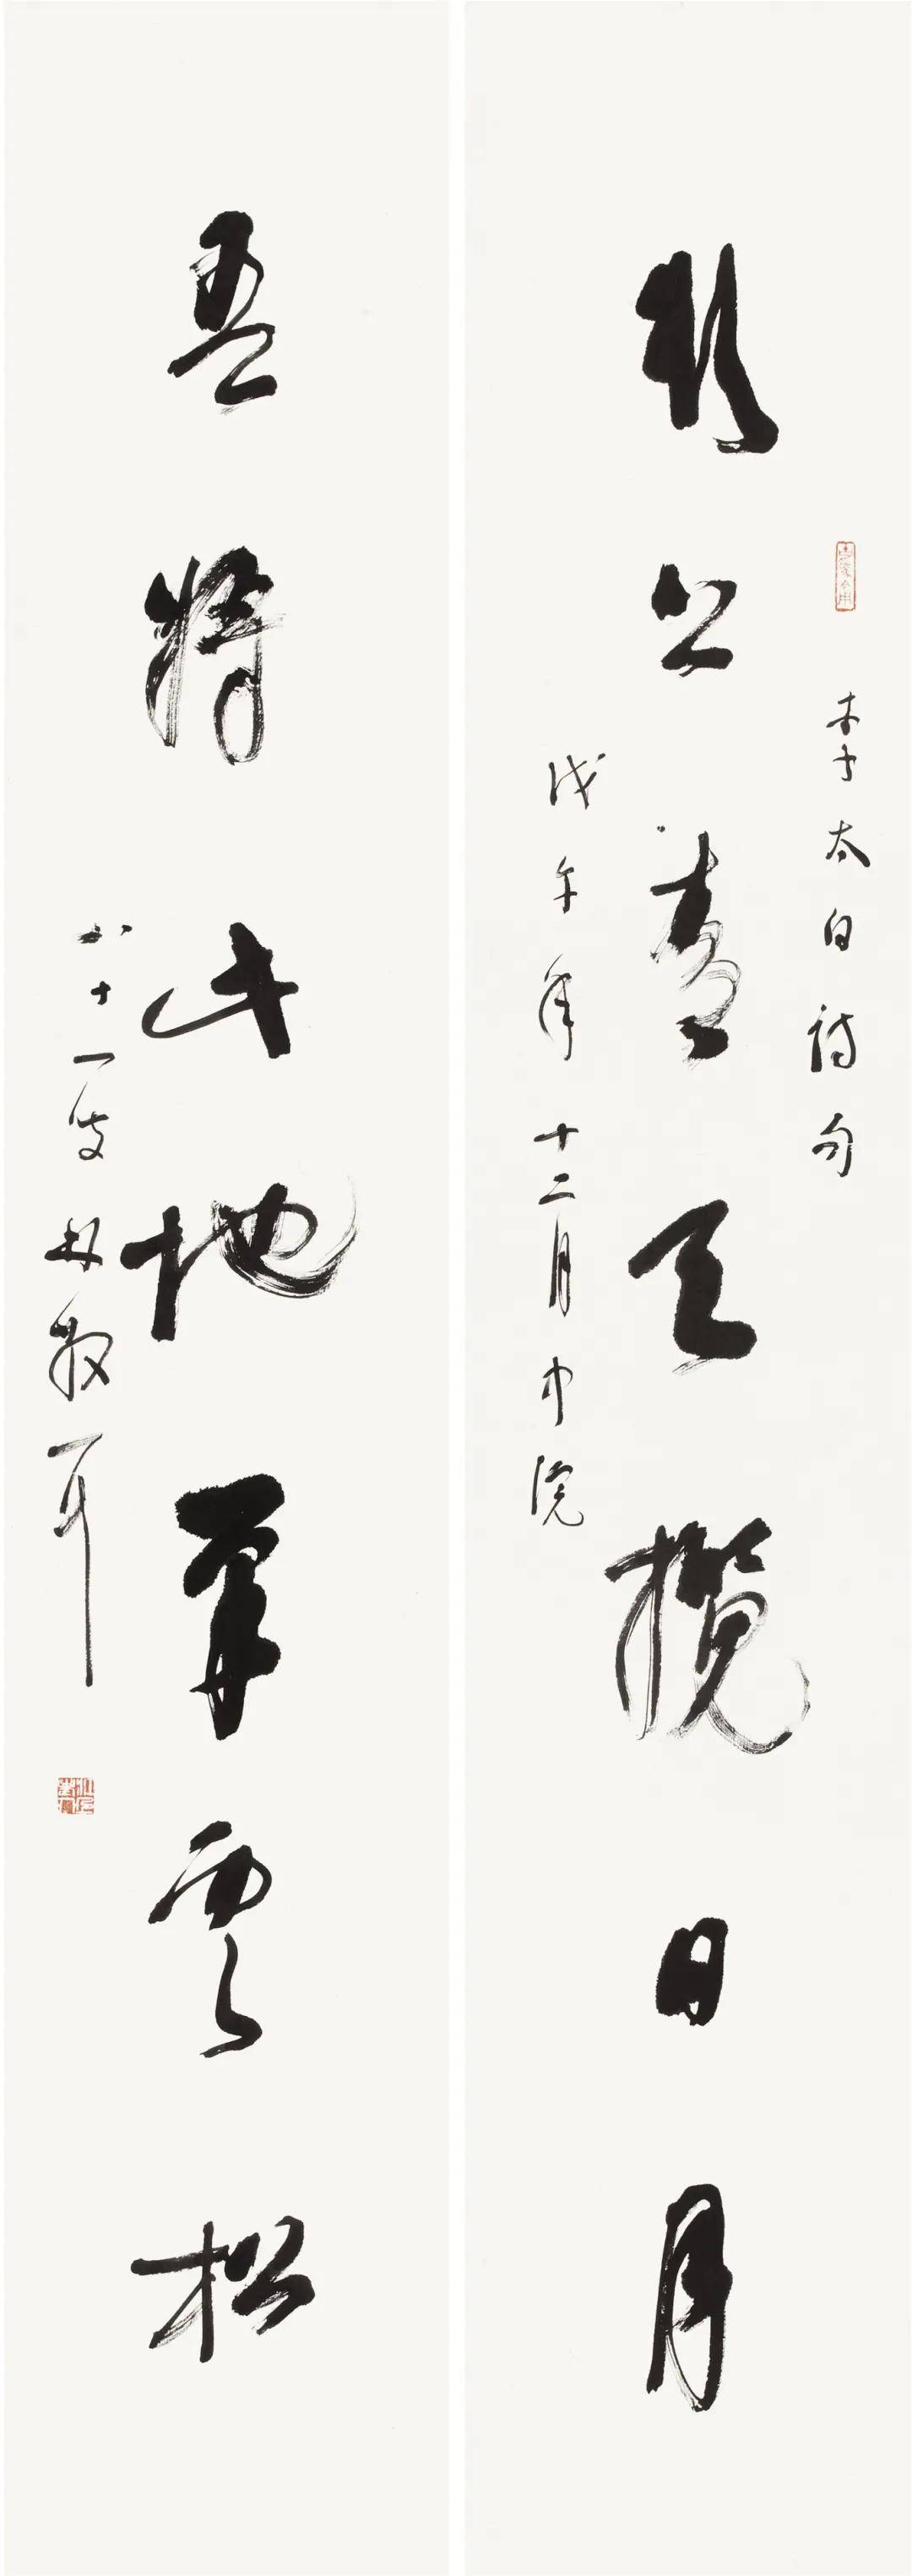 李太白詩句
欲上青天攬日月
戊午年十二月中浣
吾將此地巢雲松
八十一叟林散耳